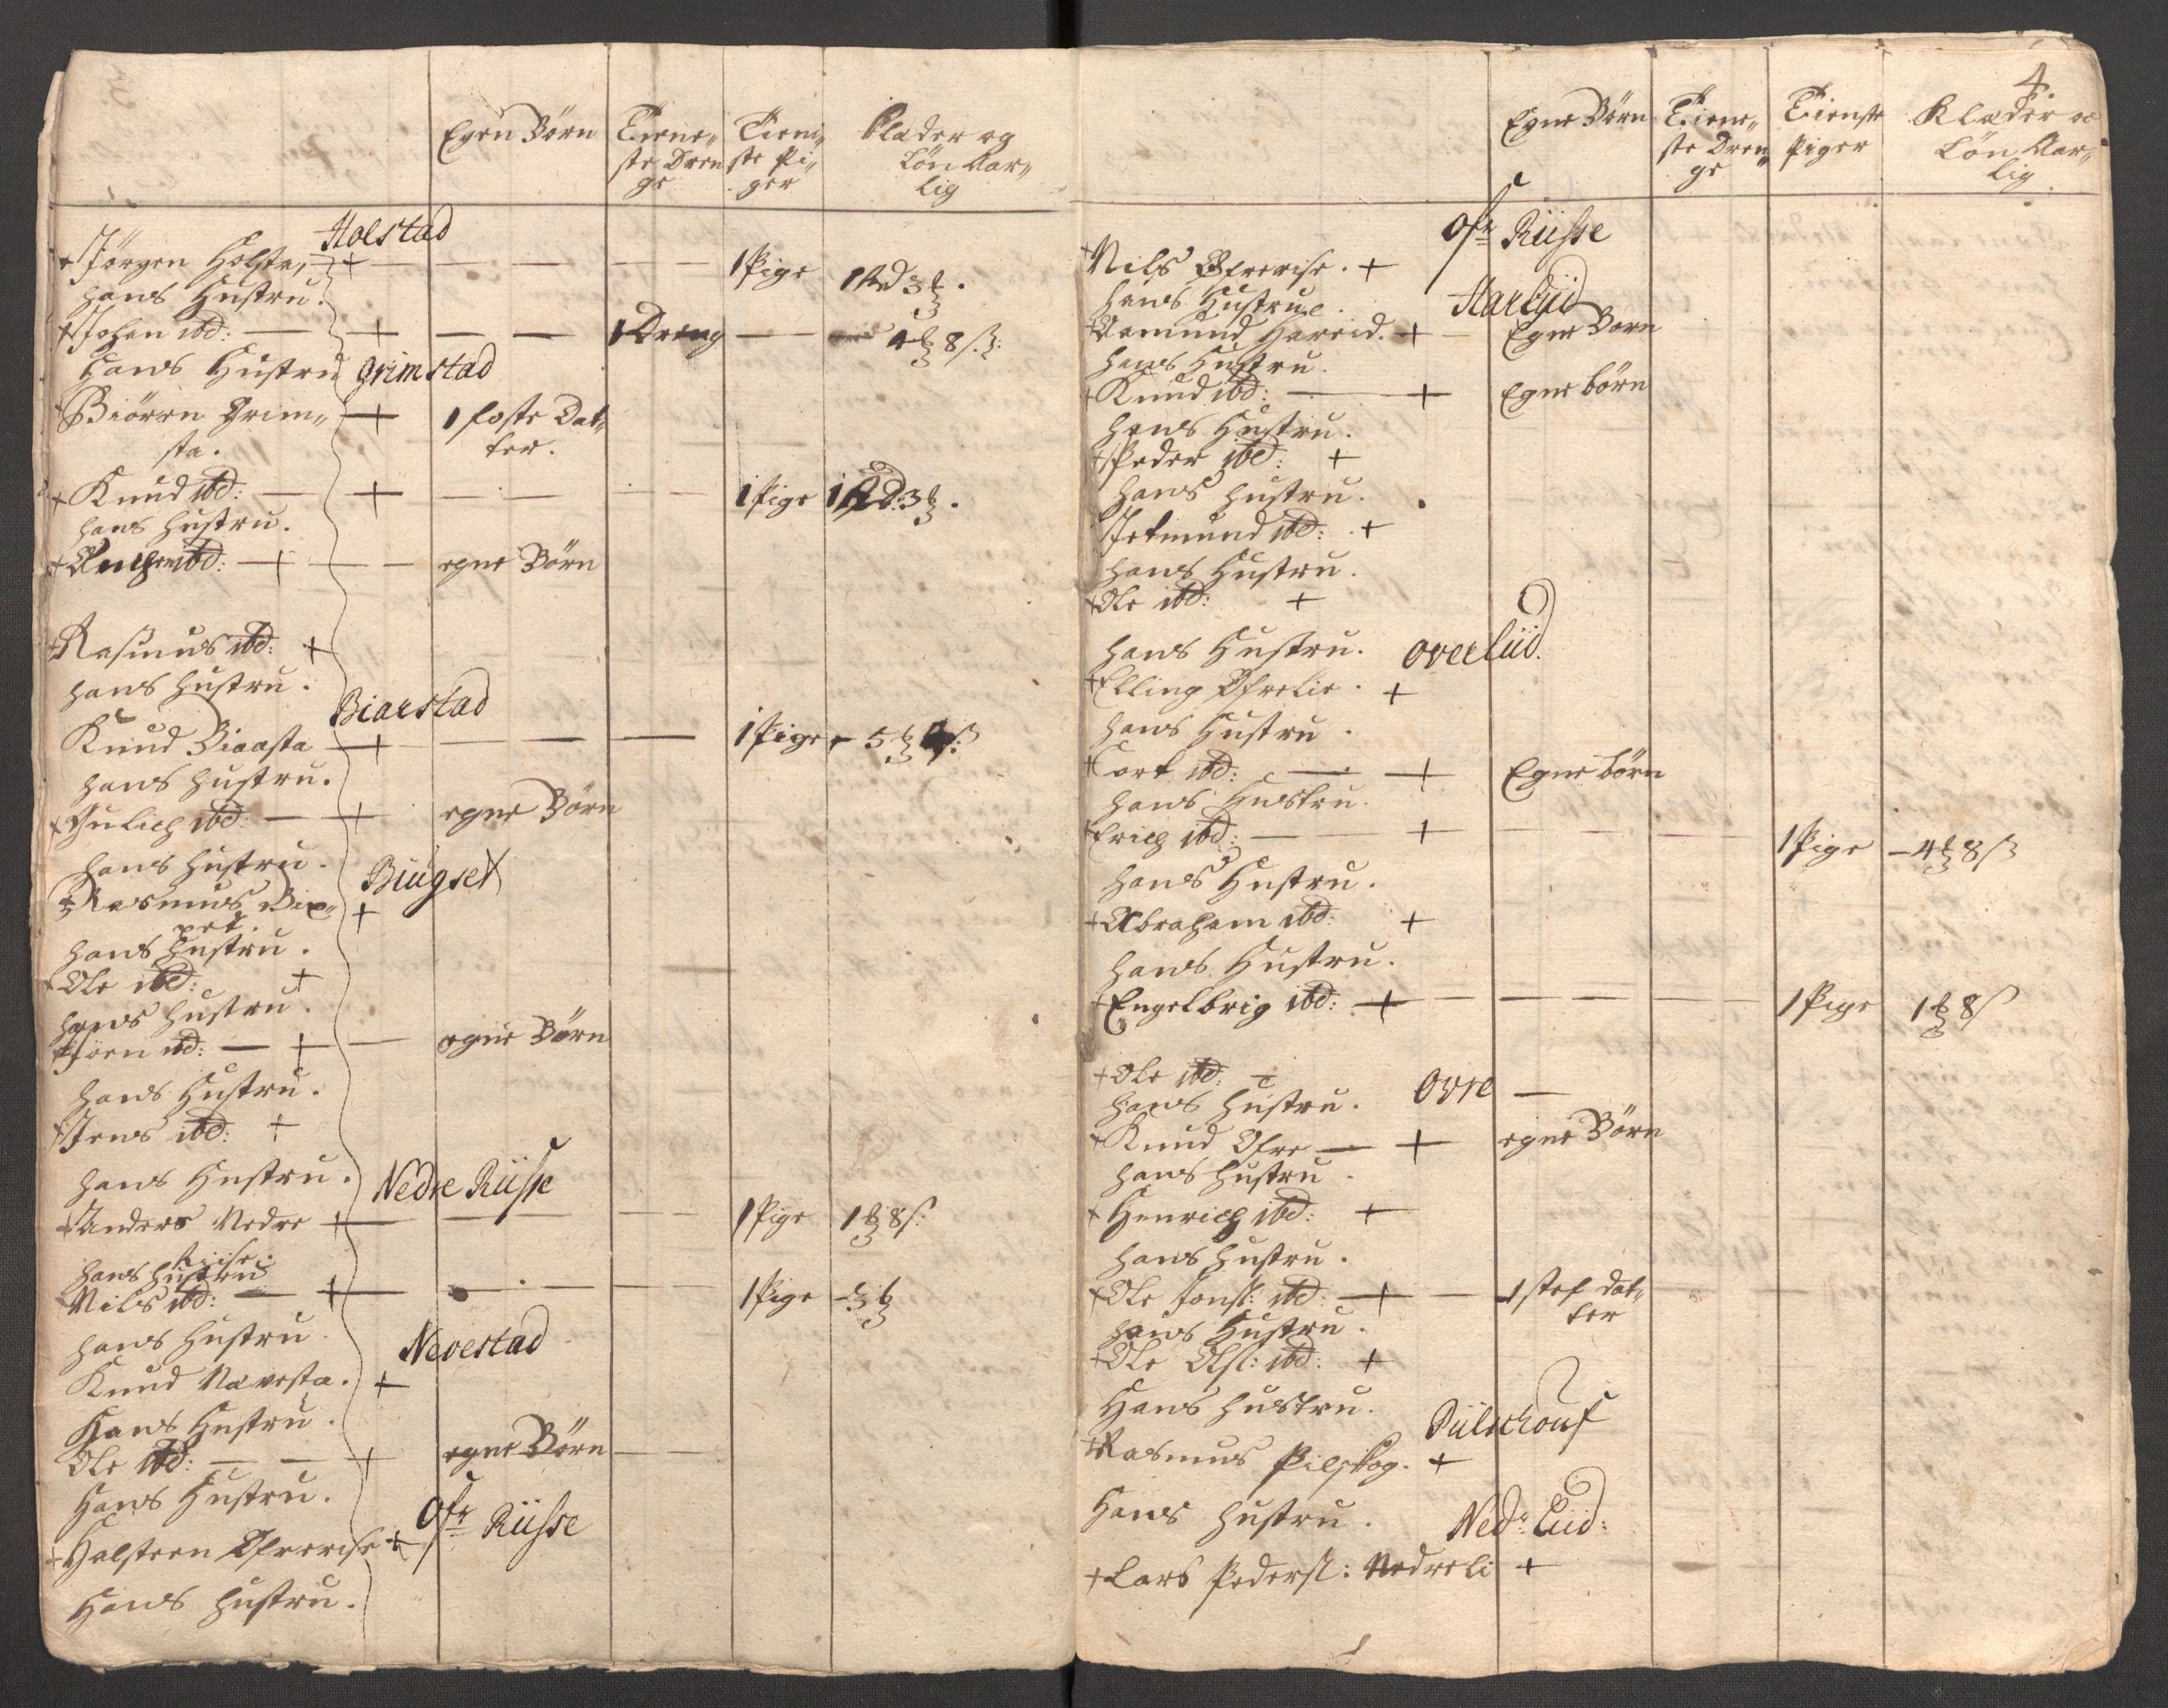 Egen Börn
Tiene„
ste Dren
ge
Tieni„
ste Pi„
ger
Klæder og
Lön Aar„
lig
Holstad
+ Jörgen Holsta, + — — — 1 Pige 1 Rd 3
hans Hustru.
+ Johan ibd: — + — — 1 Dreng — 4 8 s
hans Hustru
Grimstad
+ Biörren Grim„ + 1 foste Dat„
sta. ter.
+ Knud ibd: — + — — 1 Pige 1 Rd: 3
hans hustru.
+ ibd: — + — — egne Börn
+ Rasmus ibd: +
hans hustru.
Biarstad
Knud Biaasta + — — — 1 Pige - 5
hans hustru.
+ Gulich ibd: — + egne Börn
hans hustru.
Biugset
+ Rasmus Big„ +
set.
hans hustru.
+ Ole ibd: +
hans hustru.
+ Jöen ibd: — + — egne Börn
hans Hustru.
+ Jens ibd: +
hans Hustru.
Nedre Riisse
+ Anders Nedre + — — — 1 Pige 1 8 s:
Riise.
hans hustru
+ Nils ibd: — + — — — 1 Pige - 3
hans hustru.
Nevestad
Knud Navesta. +
Hans Hustru.
Ole ibd: — — + egne Börn — —
Hans Hustru.
Ofr Riisse
+ Halsteen Ofrerise +
Hans hustru.
4.
Egne Börn
Tiene„
ste Dren„
ge
Tienste
Piger
Klæder o
Lön Aar„
lig
Ofr Riisse
+ Nils Ofrerise. +
hans Hustrue.
Hareiid
+ Aamund Hareid. + — Egne Börn
hans Hustru.
+ Knud ibd: — + Egne börn
hans Hustru.
+ Peder ibd: +
hans hustru.
Jetmund ibd: +
hans Hustru.
+ Ole ibd: +
hans Hustru.
Overliid.
+ Elling Ofrelie. +
hans Hustru.
+ Cort ibd: — + Egne börn
hans Hustru.
+ Erich ibd: — + — — — 1 Pige — 4 8 s
hans Hustru.
+ Abraham ibd: +
hans Hustru.
+ Engelbrig ibd: + — — — 1 Pige 1 8 s
+ Ole ibd: +
hans hustru.
Ovre —
+ Knud Ofre — + egne Börn
hans hustru.
+ Henrich ibd: +
hans hustru.
+ Ole Jonss: ibd: + — 1 stef dat„
ter
hans Hustru.
+ Ole Olss: ibd: +
Hans hustru.
Piilschouf
+ Rasmus Pilskog. +
Hans hustru.
Nedr: Liid:
+ Lars Pederss: Nedreli +